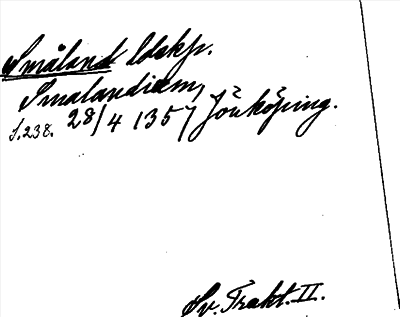 Småland ldskp.
Smalandiam,
S. 238. 28/4 1357 Jönköping.
Sv. Trakt. II.